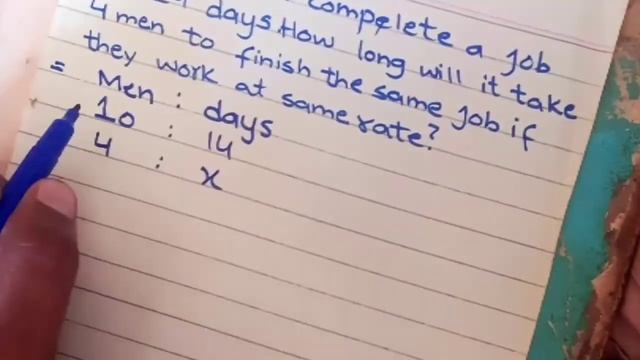 complete a job
days. How long will it take
4 men to finish the same job if
they work at same rate?
= Men : days
10 : 14
4 : x